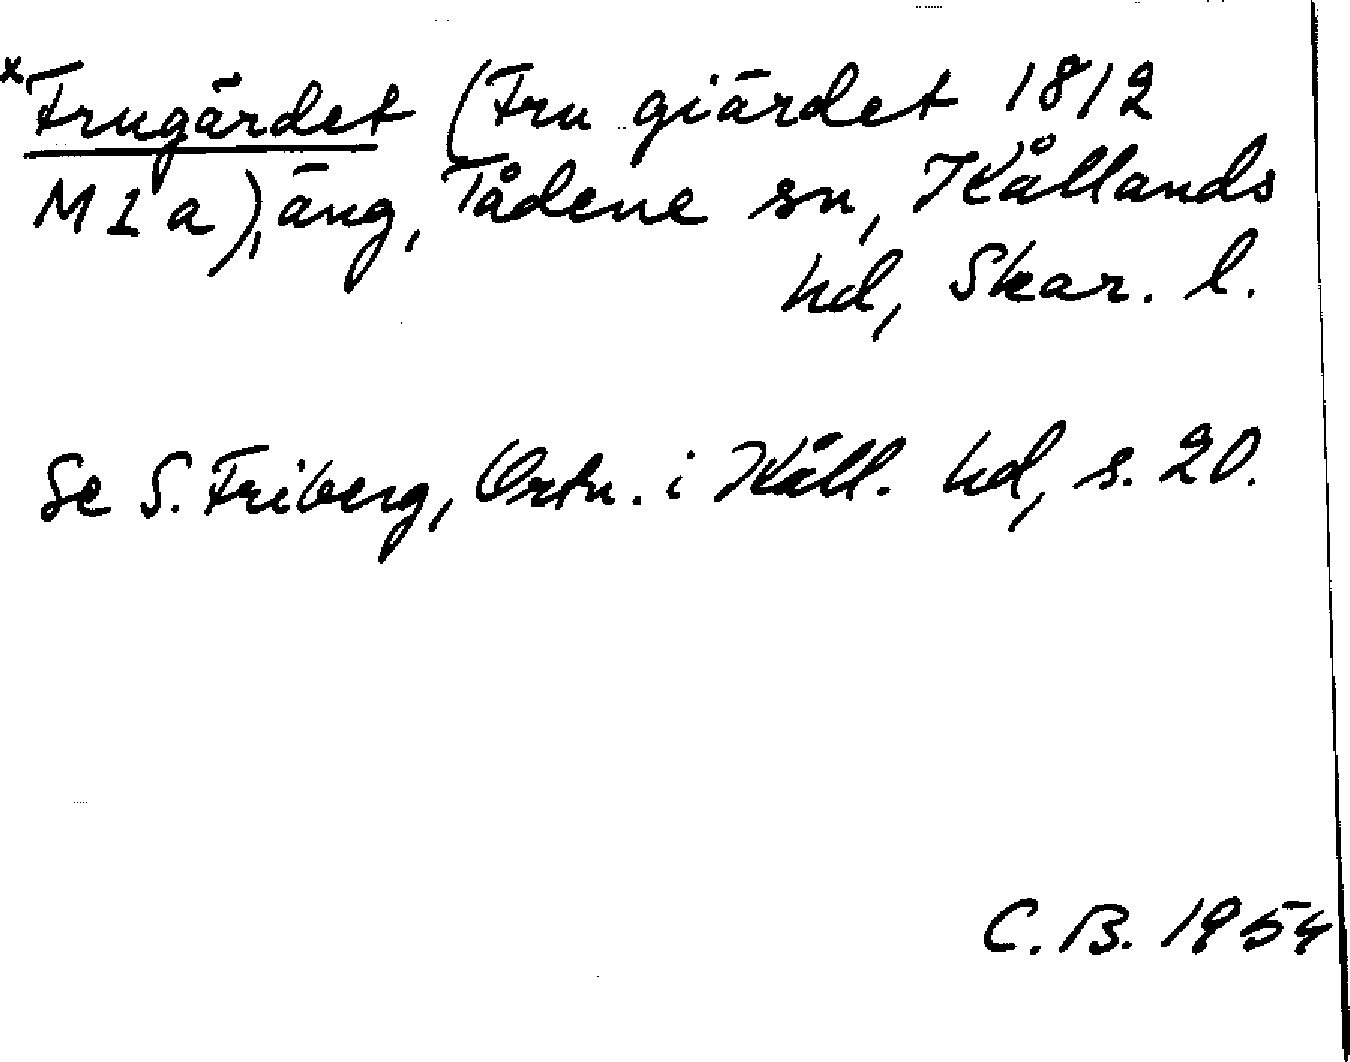 x Frugärdet (Fru giärdet 1812
M 1 a), äng, Tådene sn, Kållands
hd, Skar. l.
Se S. Friberg, Ortn. i Kåll. hd, s. 20.
C. B. 1954